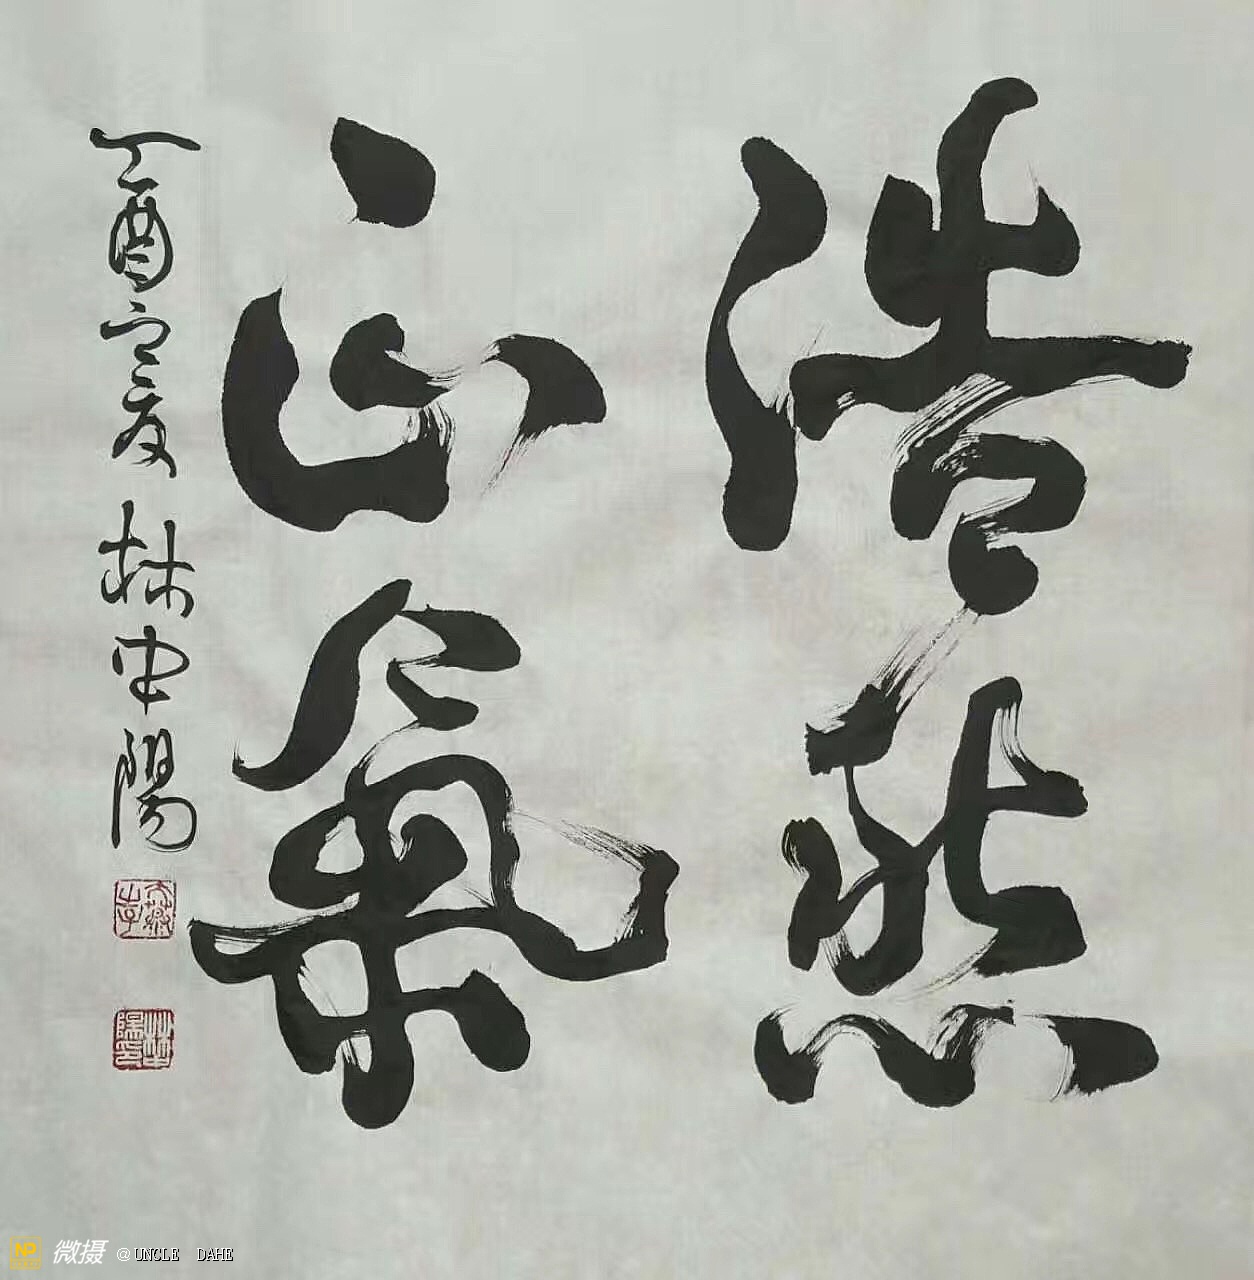 浩然
正氣
丁酉之夏 林中陽
NP 微摄 @UNCLE DAHE